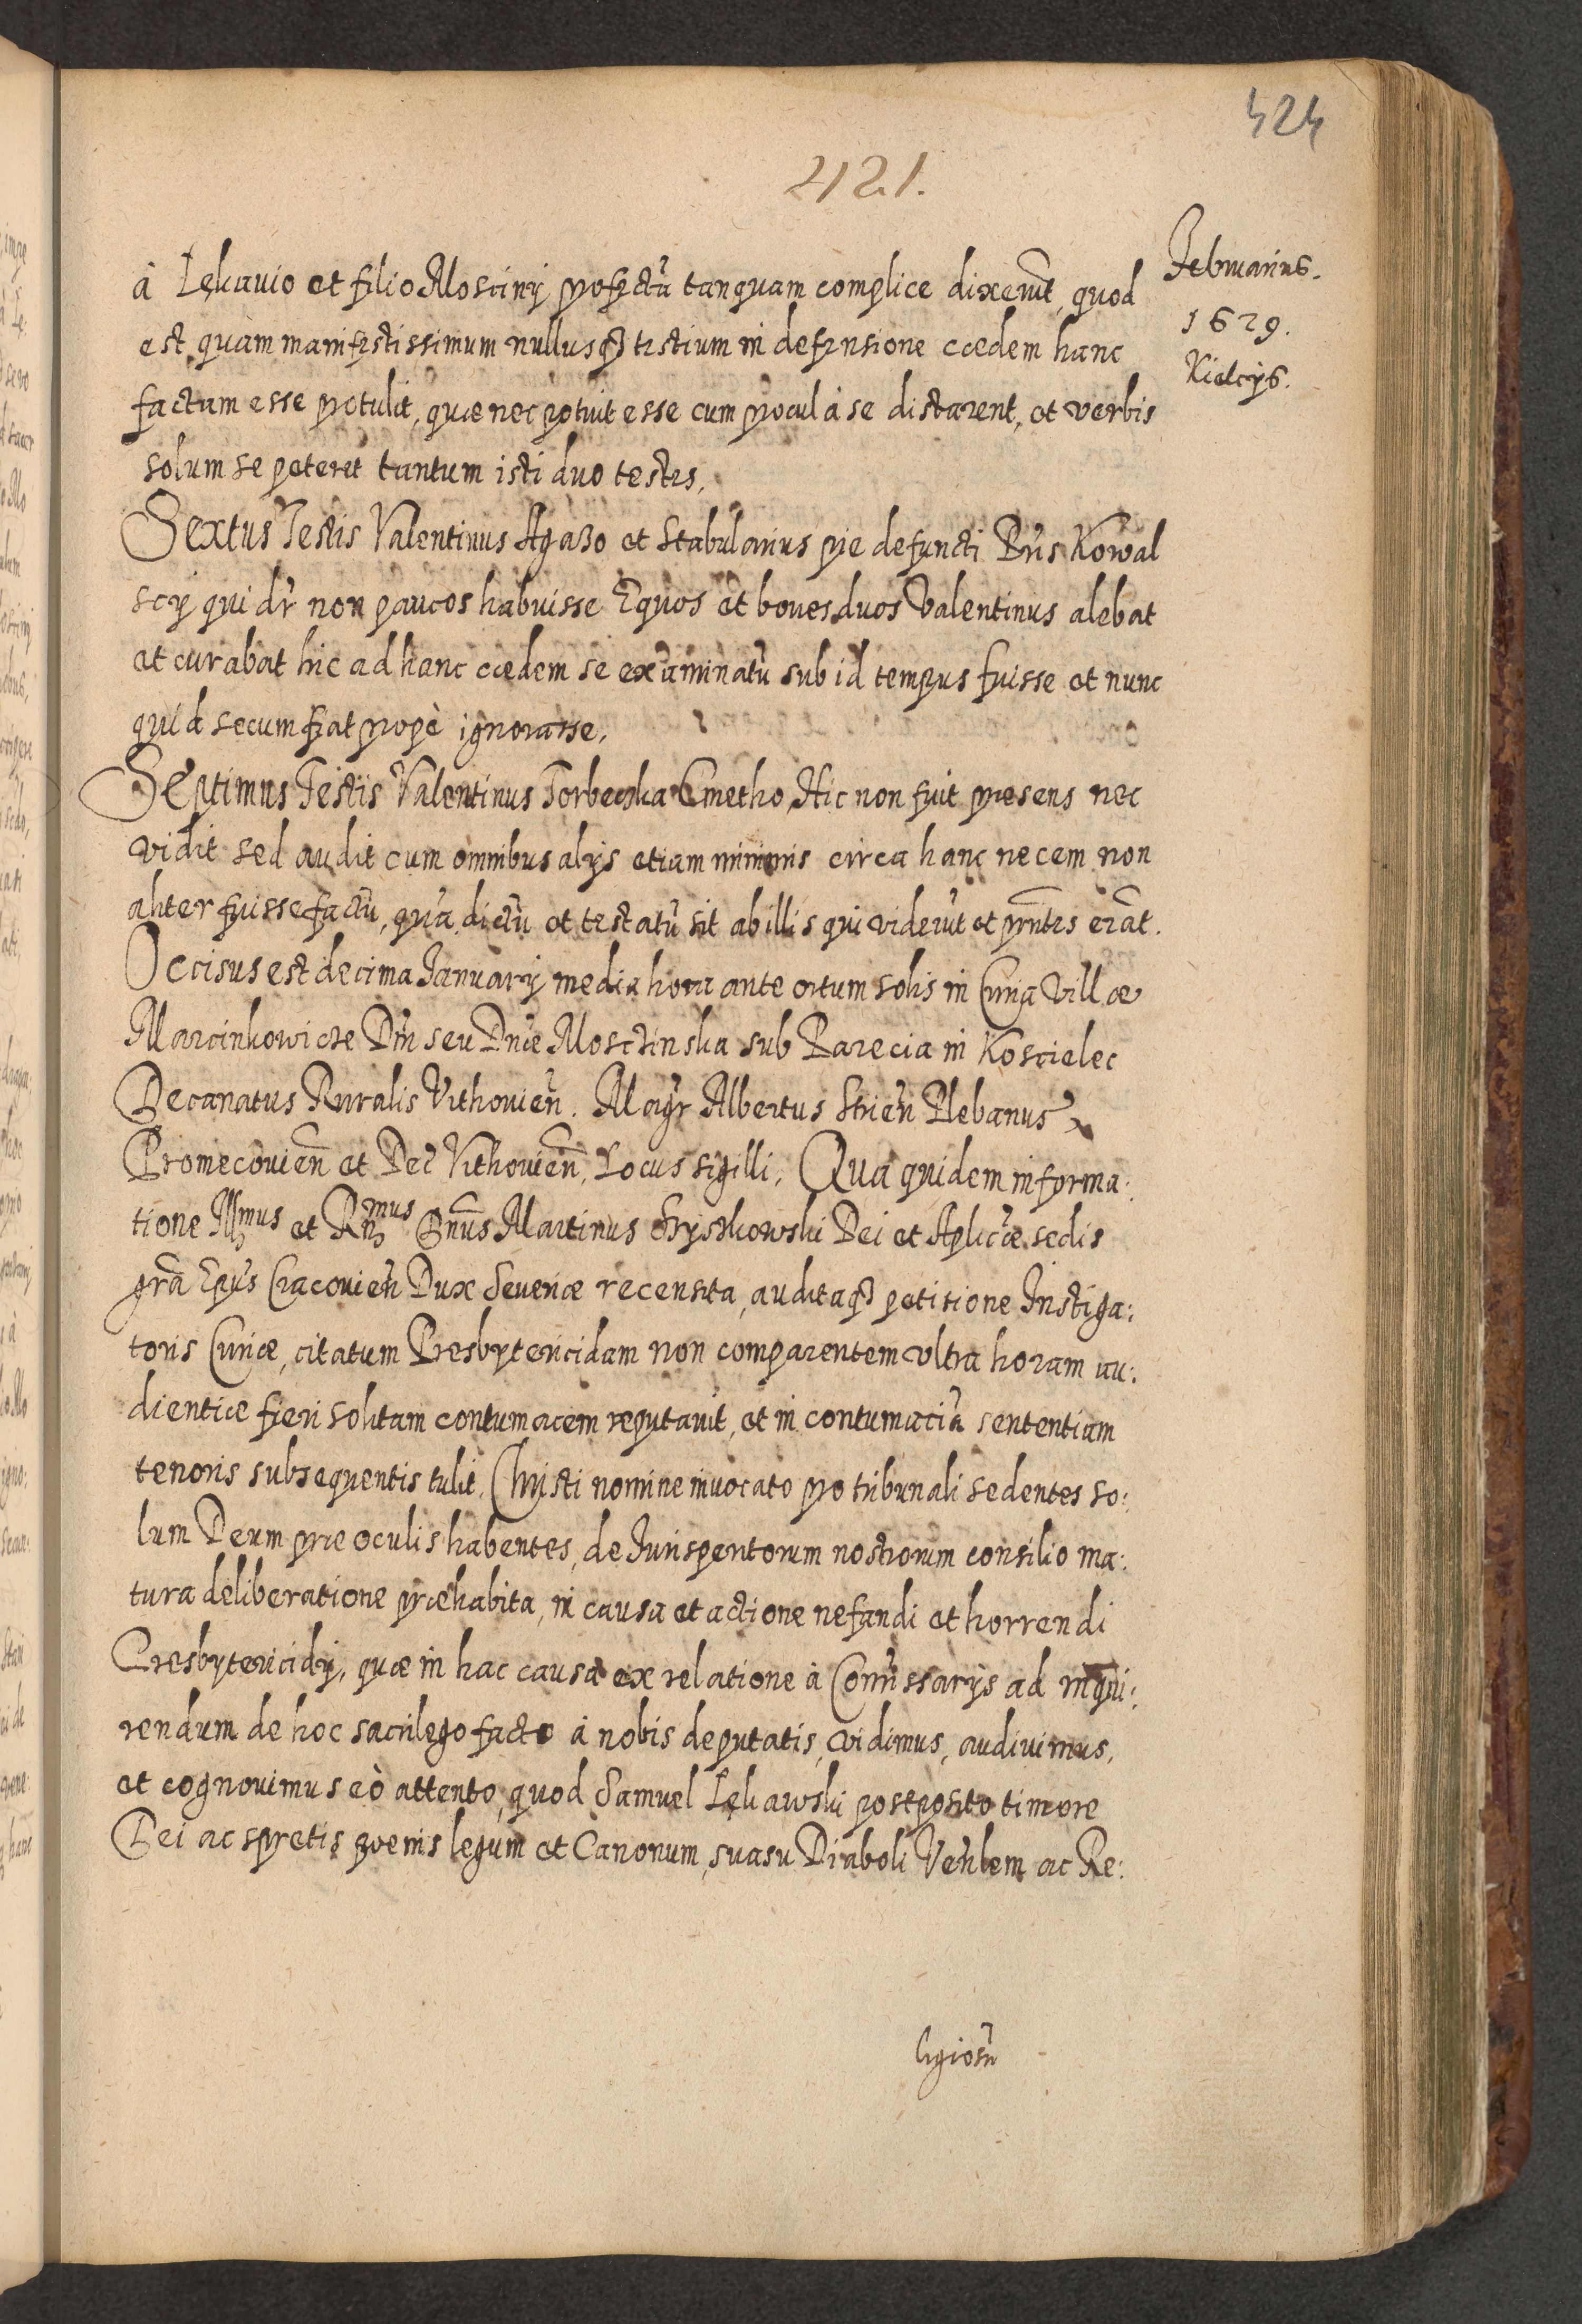 424
421.
Februarius.
1629.
Kielcÿs.
à Lekauio et filio Mosciny profectũ tanquam complice dixerũt, quod
est quàm manifestissimum nullusq₃ testium in defensione cædem hanc
factam esse protulit, quæ nec potuit esse cum procul à se distarent, et verbis
solum se peteret tantum isti duo testes.
Sextus Testis Valentinus Agazo et Stabularius pie defuncti Pris Kowal
scÿ qui dr̃ non paucos habuisse Equos et boues duos Valentinus alebat
et curabat hic ad hanc cædem se examinatũ sub id tempus fuisse et nunc
quid secum fiat prope ignorasse.
Septimus Testis Valentinus Torbeczka Cmetho, Hic non fuit præsens nec
vidit sed audit cum omnibus alÿs etiam minimis circa hanc necem non
aliter fuisse factũ, quã dictũ et testatũ sit ab illis qui viderũt et pñtes erãt.
Occisus est decima Januarÿ media hora ante ortum solis in Curia Villæ
Marcinkowice Dñi seu Dnæ Mosctinska sub Parecia in Koscielec
Decanatus Ruralis Vithouieñ. Magr̃ Albertus Strieñ Plebanus
Promecouieñ et Dec̃ Vithouieñ, Locus sigilli, Qua quidem informa:
tione Illmus et Rñmus Dñus Martinus Szyszkowski Dei et Aplicæ sedis
grã Epũs Cracouieñ Dux Seueriæ recensita, auditaq₃ petitione Instiga:
toris Curiæ, citatum Presbytericidam non comparentem vltra horam au:
dientiæ fieri solitam contumacem reputauit, et in contumaciã sententiam
tenoris subsequentis tulit. Christi nomine inuocato pro tribunali sedentes so:
lum Deum præ oculis habentes, de Jurisperitorum nostrorum consilio ma:
tura deliberatione præhabita, in causa et actione nefandi et horrendi
Presbytericidÿ, quæ in hac causa ex relatione à Comissarÿs ad inqui:
rendum de hoc sacrilego facto à nobis deputatis, vidimus, audiuimus,
et cognouimus eò attento, quod Samuel Lekawski postposito timore
Dei ac spretis pœnis legum et Canonum, suasu Diaboli Veñlem ac Re:
ligiosũ